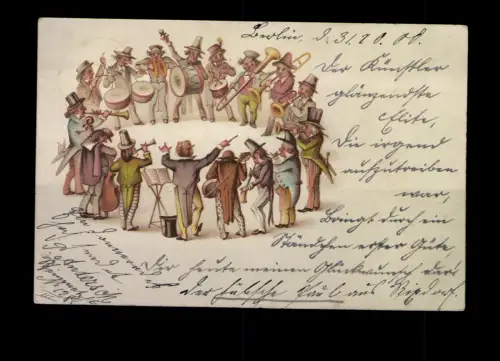 Berlin, d. 31.10.00.
Der Künstler
glänzendste
Elite,
Die irgend
aufzutreiben
war,
Bringt durch ein
Ständchen erster Güte,
Dir heute meinen Glückwunsch dar:
der hübsche Paul aus Rixdorf.